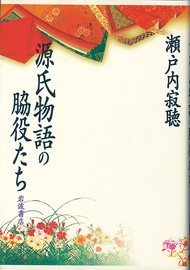 瀬戸内寂聴
源氏物語の
脇役たち
岩波書店